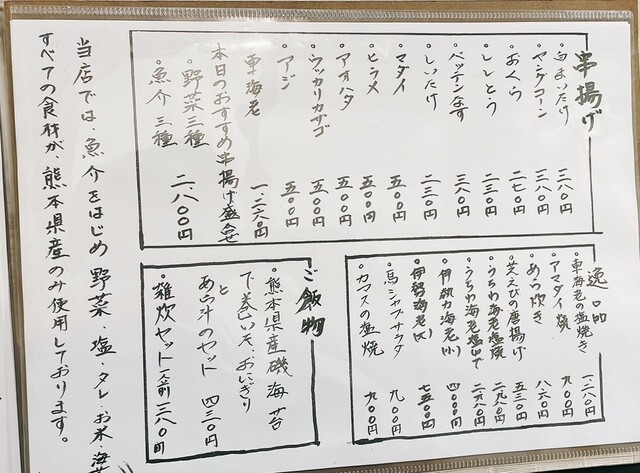 串揚げ
・白まいたけ 三八〇円
・ヤングコーン 三八〇円
・おくら 二七〇円
・ししとう 二三〇円
・バッテンなす 三八〇円
・しいたけ 二三〇円
・マダイ 五〇〇円
・ヒラメ 五〇〇円
・アオハタ 五〇〇円
・ウッカリカサゴ 五〇〇円
・アジ 五〇〇円
・車海老 一、二六〇円
本日のおすすめ串揚げ盛合せ
・野菜三種
・魚介三種 二、八〇〇円
逸品
・車海老の塩焼き 一、二八〇円
・アマダイ焼 九〇〇円
・あら炊き 八六〇円
・芝えびの唐揚げ 五三〇円
・うちわ海老の塩焼 二九八〇円
・うちわ海老塩ゆで 二九八〇円
・伊勢海老(小) 四〇〇〇円
・伊勢海老(大) 七五〇〇円
・馬シャブサラダ 九八〇円
・カマスの塩焼 九〇〇円
ご飯物
・熊本県産磯海苔
で巻いた、おにぎり
と
あら汁のセット 四三〇円
・雑炊セット 一人前 一三八〇円
当店では、魚介をはじめ野菜・塩・タレ お米・海
すべての食材が、熊本県産のみ使用しております。